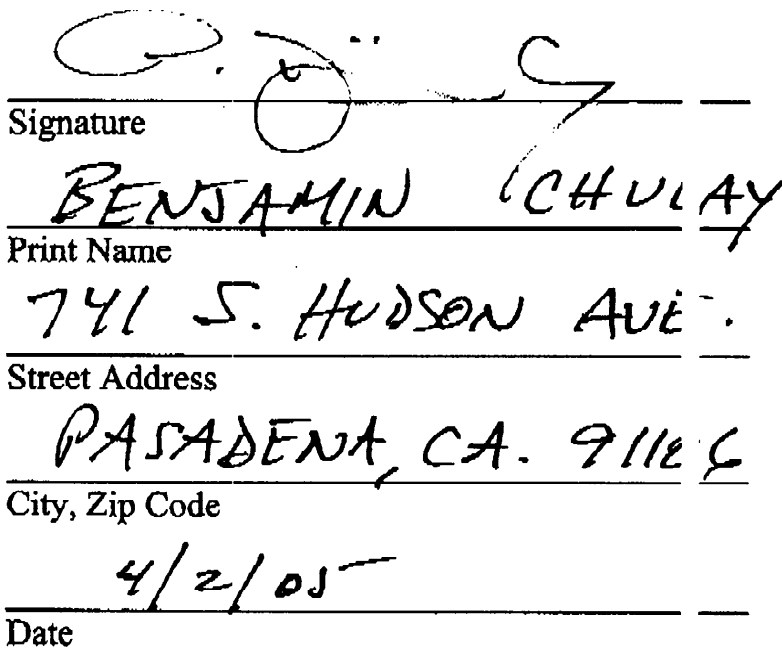 Signature
BENJAMIN CHULAY
Print Name
741 S. HUDSON AVE.
Street Address
PASADENA, CA.
City, Zip Code
4/2/05
Date